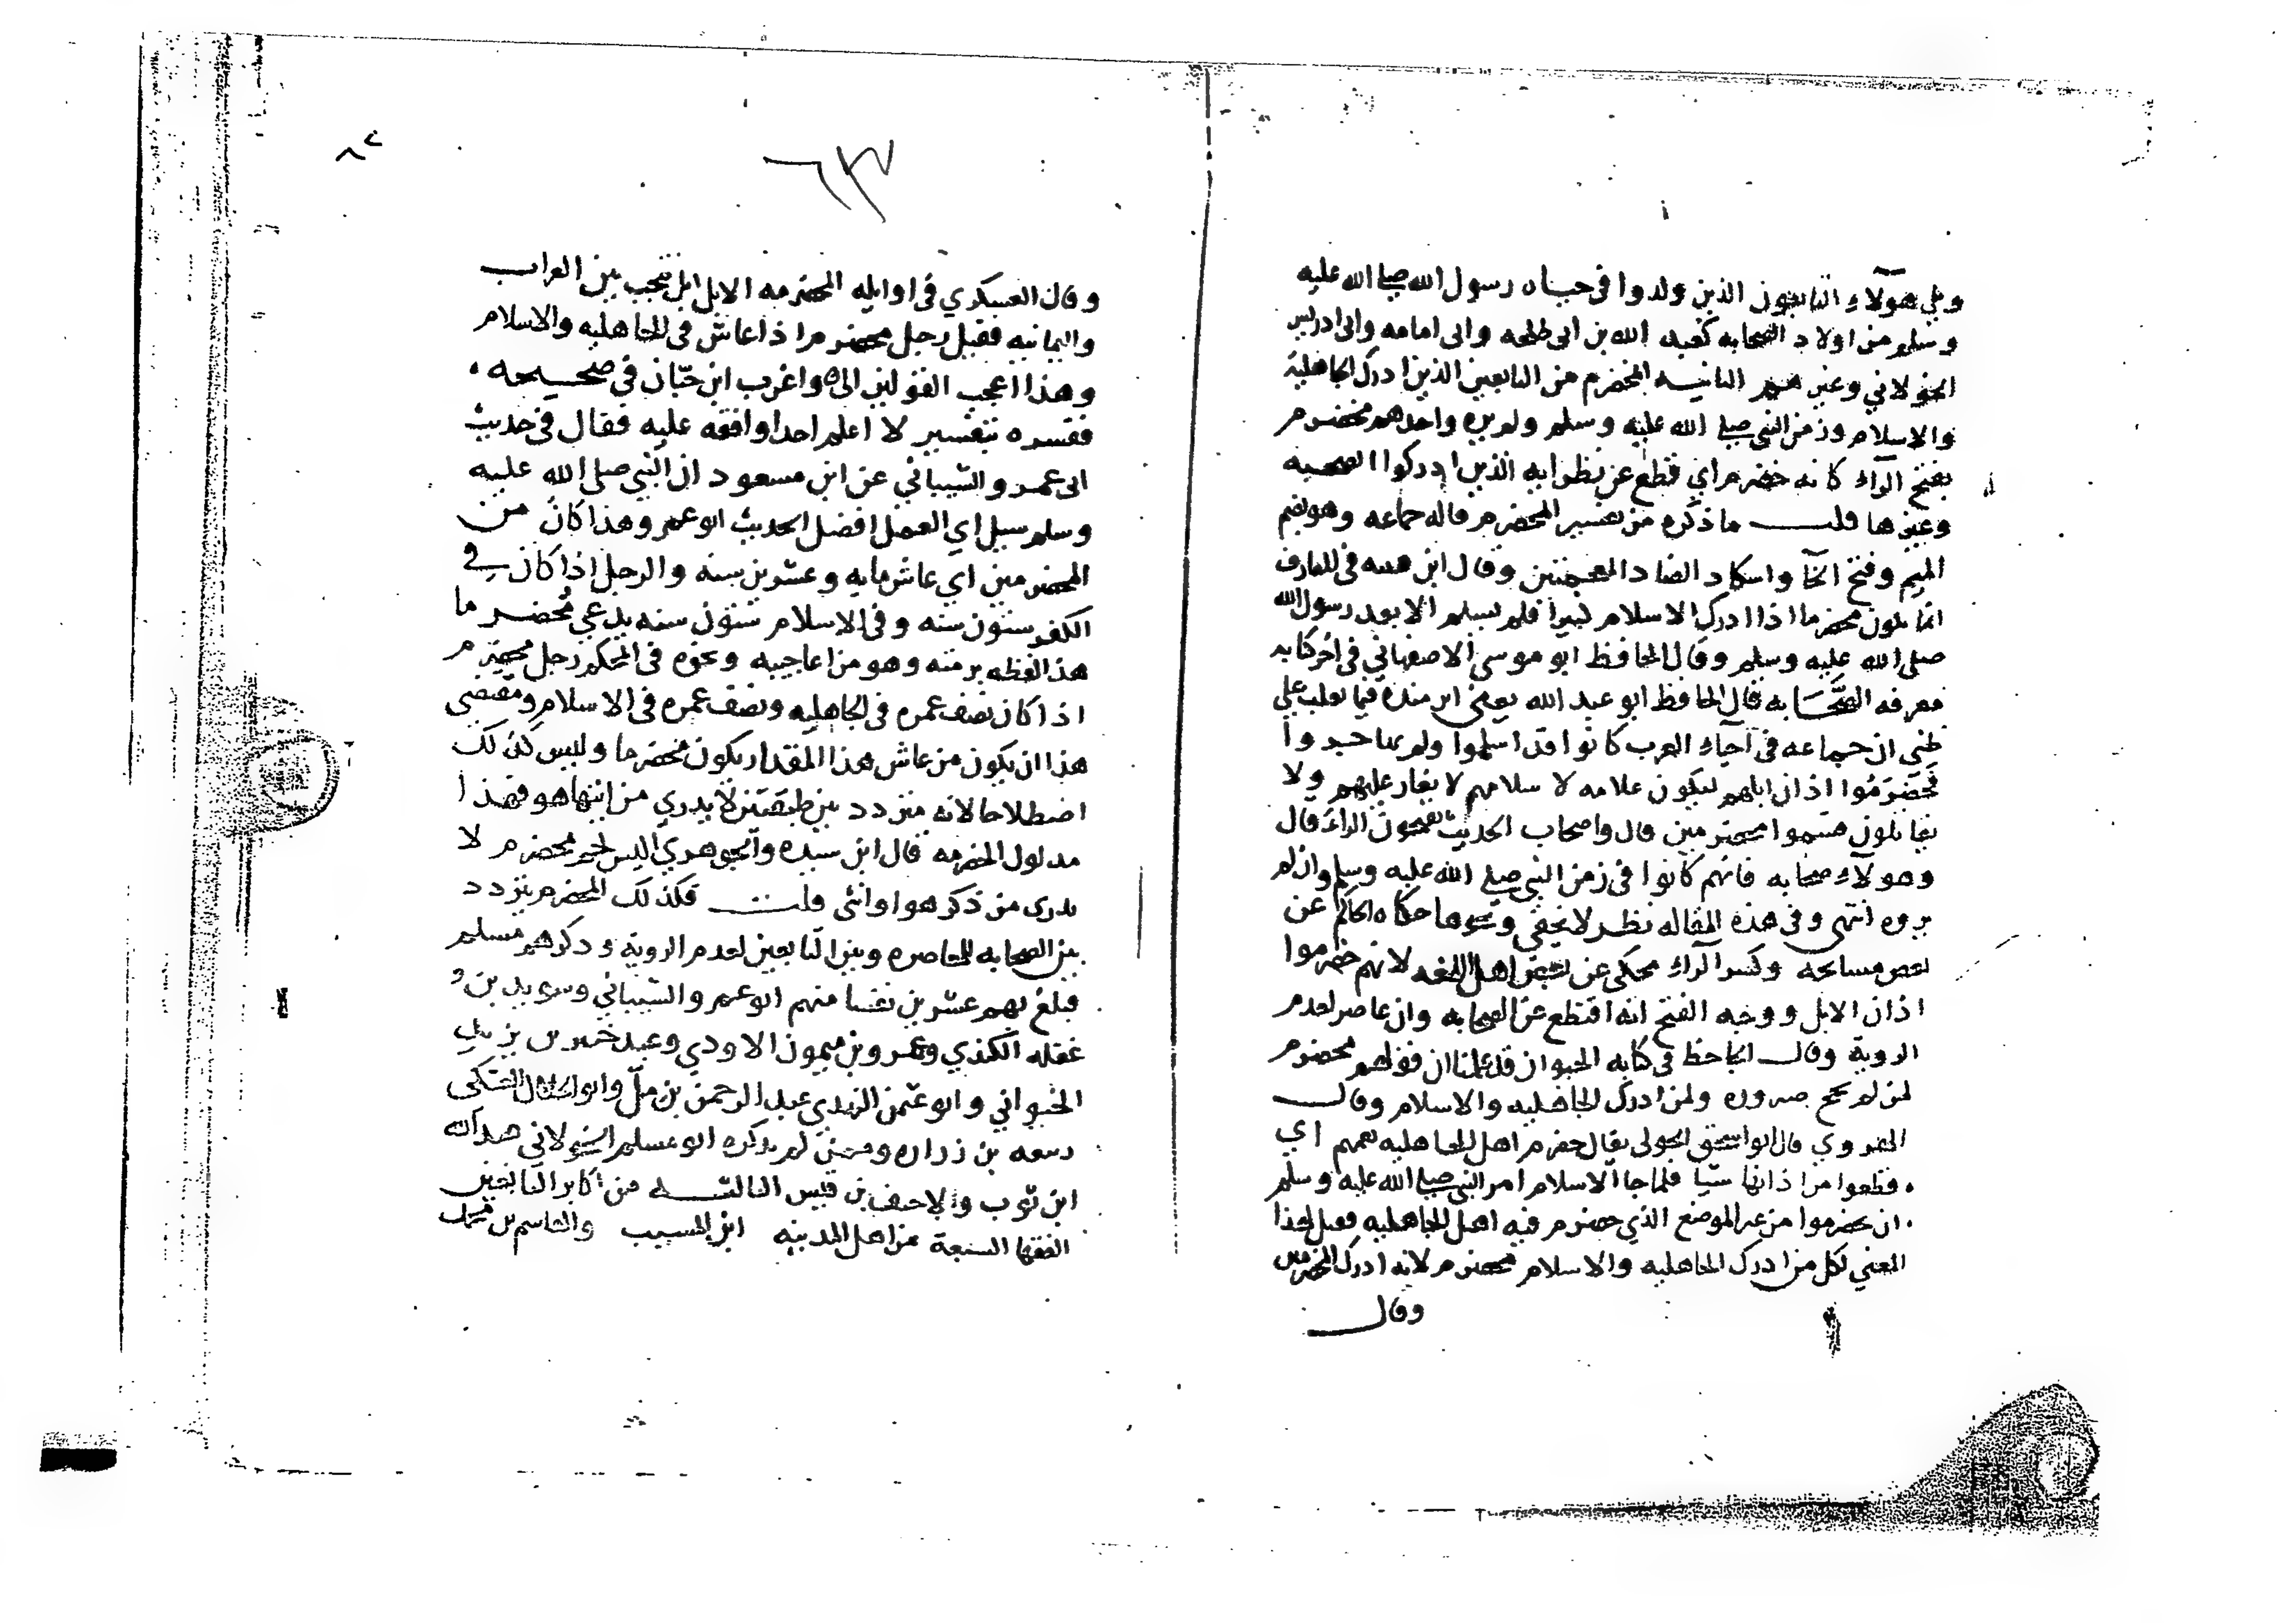 ويلي هولاء التابعون الذين ولدوا في حياه رسول الله صلى الله عليه
وسلم من اولاد الصحابه كعبد الله بن ابي طلحه وابي امامه وابي ادريس
الخولاني وغيرهم الثانيه المخضرم من التابعين الذين ادرك الجاهلية
والاسلام وزمن النبي صلى الله عليه وسلم ولم يره واحدهم مخضرم
بفتح الراء كانه خضرم اي قطع عن نظرايه الذين ادركوا الصحبه
وغيرها قلت ما ذكره من تفسير المخضرم قاله جماعه وهو بضم
الميم وفتح الخا واسكان الضاد المعجمتين وقال ابن قتيبه في المعارف
انما يكون مخضرما اذا ادرك الاسلام كبيرا فلم يسلم الا بعد رسول الله
صلى الله عليه وسلم وقال الحافظ ابو موسى الاصفهاني في اخر كتابه
معرفه الصحابه قال الحافظ ابو عبد الله يعني ابن منده فيما يغلب علي
ظني ان جماعه في احياء العرب كانوا قد اسلموا ولم يهاجروا
فخضرموا اذان ابلهم ليكون علامه لاسلامهم لا يغار عليهم ولا
يقاتلون فسموا مخضرمين قال واصحاب الحديث يفتحون الراء قال
وهولاء صحابه فانهم كانوا في زمن النبي صلى الله عليه وسلم وان لم
يروه انتهى وفي هذه المقاله نظر لا يخفي ونحوها حكاه الحاكم عن
بعض مشايخه وكسر الراء محكي عن بعض اهل اللغه لانهم خضرموا
اذان الابل ووجه الفتح انه اقتطع عن الصحابه وان عاصر لعدم
الروية وقال الجاحظ في كتابه الحيوان قد علمنا ان قولهم مخضرم
لمن لم يحج صروره ولمن ادرك الجاهليه والاسلام وقال
الهروي قال ابو اسحق الحولي يقال خضرم اهل الجاهليه نعمهم اي
قطعوا من اذانها شيا فلما جا الاسلام امر النبي صلى الله عليه وسلم
ان يخضرموا من غير الموضع الذي خضرم فيه اهل الجاهليه فقيل لهذا
المعني لكل من ادرك الجاهليه والاسلام مخضرم لانه ادرك الخضرمتين
وقال
٦٣٧
٨٢
وقال العسكري في اوايله المخضرمه الابل التي نتجت بين العراب
واليمانيه فقيل رجل مخضرم اذا عاش في الجاهليه والاسلام
وهذا اعجب القولين الي واغرب ابن حبان في صحيحه
ففسره بتفسير لا اعلم احدا وافقه عليه فقال في حديث
ابي عمرو الشيباني عن ابن مسعود ان النبي صلى الله عليه
وسلم سيل اي العمل افضل الحديث ابو عمرو هذا كان من
المخضرمين اي عاش مايه وعشرين سنه والرجل اذا كان في
الكفر ستون سنه وفي الاسلام ستون سنه يدعي مخضرما
هذا لفظه برمته وهو من اعاجيبه ونحوه في المحكم رجل مخضرم
اذا كان نصف عمره في الجاهليه ونصف عمره في الاسلام ومقتضى
هذا ان يكون من عاش هذا المقدار يكون مخضرما وليس كذلك
اصطلاحا لانه متردد بين طبقتين لا يدري من ايتها هو فهذا
مدلول الخضرمه قال ابن سيده والجوهري اليس لحم مخضرم لا
يدري من ذكر هو او انثى قلت فكذلك المخضرم يتردد
بين الصحابه للمعاصره وبين التابعين لعدم الروية وذكرهم مسلم
فبلغ بهم عشرين نفسا منهم ابو عمرو الشيباني وسويد بن
غفله الكندي وعمرو بن ميمون الاودي وعبد خير بن يزيد
الخيواني وابو عثمن النهدي عبد الرحمن بن مل وابو الحلال العتكي
ربيعه بن زراره وممن لم يذكره ابو مسلم الخولاني عبد الله
ابن ثوب والاحنف بن قيس الثالثه من اكابر التابعين
الفقها السبعة من اهل المدينه ابن المسيب والقاسم بن محمد